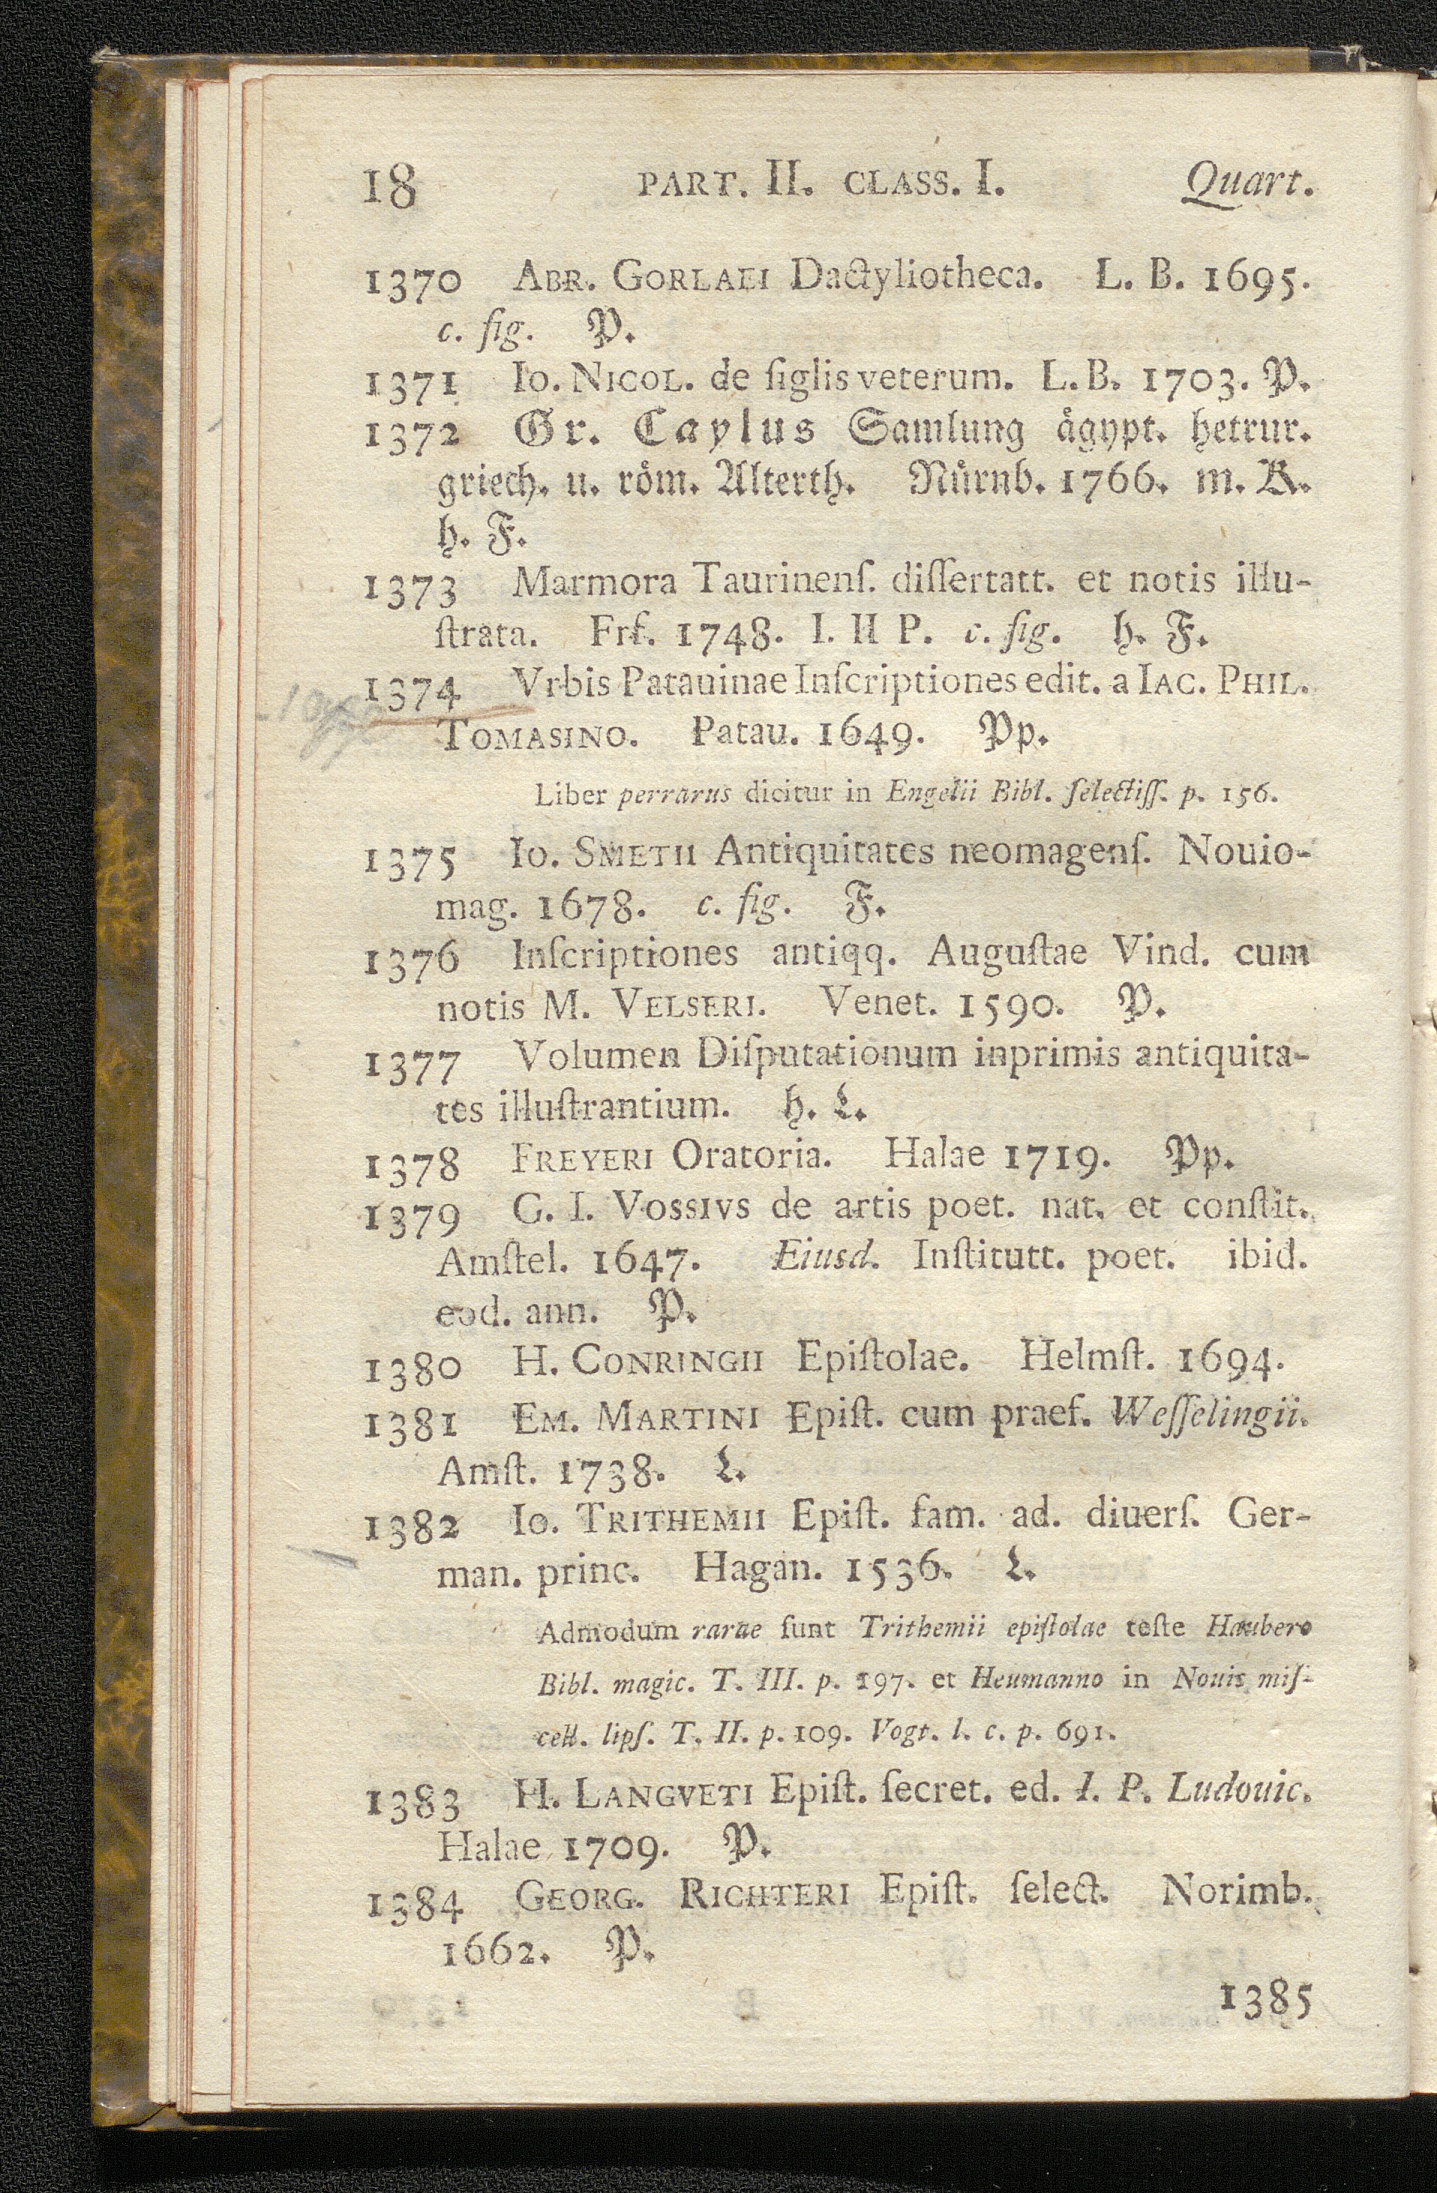 18 PART. II. CLASS. I. Quart.
1370 ABR. GORLAEI Dactyliotheca. L. B. 1695.
c. fig. P.
1371 Io. NICOL. de ſiglis veterum. L. B. 1703. P.
1372 Gr. Caylus Samlung ägypt. hetrur.
griech. u. röm. Alterth. Nürnb. 1766. m. K.
h. F.
1373 Marmora Taurinenſ. diſſertatt. et notis illu-
ſtrata. Frf. 1748. I. II P. c. fig. h. F.
1374 Vrbis Patauinae Inſcriptiones edit. a IAC. PHIL.
TOMASINO. Patau. 1649. Pp.
Liber perrarus dicitur in Engelii Bibl. ſelectiſſ. p. 156.
1375 Io. SMETII Antiquitates neomagenſ. Nouio-
mag. 1678. c. fig. F.
1376 Inſcriptiones antiqq. Auguſtae Vind. cum
notis M. VELSERI. Venet. 1590. P.
1377 Volumen Diſputationum inprimis antiquita-
tes illuſtrantium. h. L.
1378 FREYERI Oratoria. Halae 1719. Pp.
1379 G. I. VOSSIVS de artis poet. nat. et conſtit.
Amſtel. 1647. Eiusd. Inſtitutt. poet. ibid.
eod. ann. P.
1380 H. CONRINGII Epiſtolae. Helmſt. 1694.
1381 EM. MARTINI Epiſt. cum praef. Weſſelingii.
Amſt. 1738. L.
1382 Io. TRITHEMII Epiſt. fam. ad. diuerſ. Ger-
man. princ. Hagan. 1536. L.
Admodum rarae ſunt Trithemii epiſtolae teſte Haubero
Bibl. magic. T. III. p. 197. et Heumanno in Nouis miſ-
cell. lipſ. T. II. p. 109. Vogt. l. c. p. 691.
1383 H. LANGVETI Epiſt. ſecret. ed. I. P. Ludouic.
Halae 1709. P.
1384 GEORG. RICHTERI Epiſt. ſelect. Norimb.
1662. P.
1385